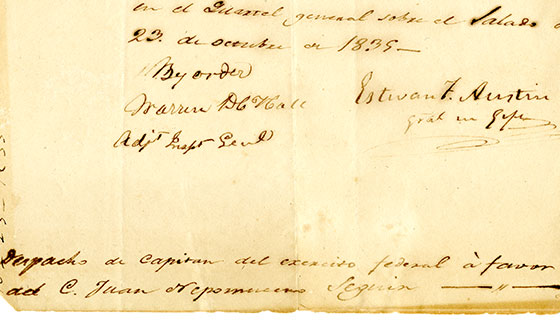 en el Quartel general sobre el Salado a
23. de octubre de 1835—
By order
Warren D C Hall
Estevan F. Austin
Adjt Inspt Genl
Gral en Gefe
Despacho de Capitan del exercito federal à favor
del C. Juan Nepomuceno Seguin — " —